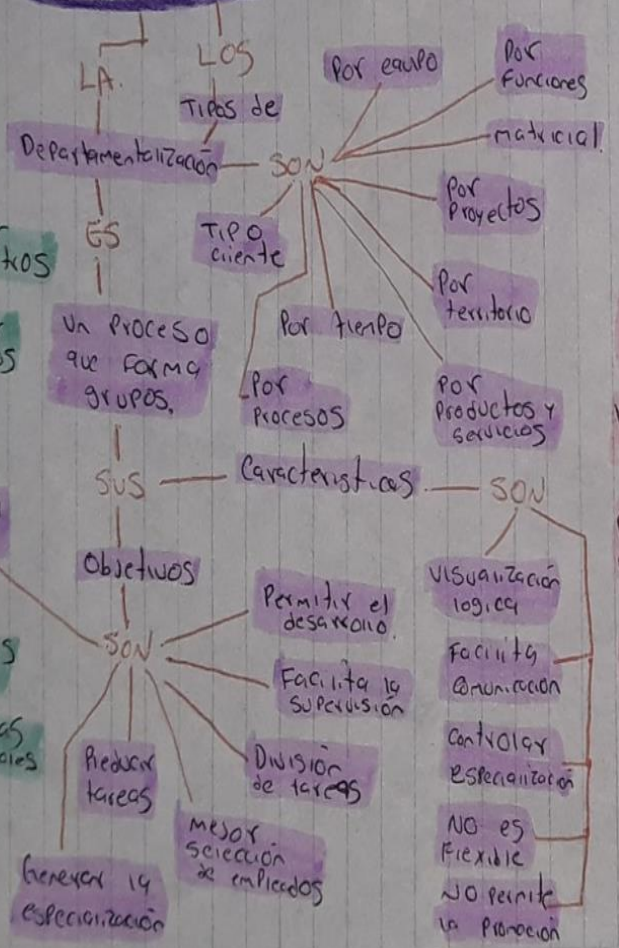 LA.
LOS
Tipos de
Departamentalización
SON
Por equipo
Por
Funciones
matricial.
Por
Proyectos
Por
territorio
Por
Productos y
Servicios
Por tiempo
Por
Procesos
TIPO
cliente
ES
Un Proceso
que Forma
grupos.
SUS
Caracteristicas
SON
Visualización
logica
Facilita
Comunicación
Controlar
especialización
NO es
Flexible
NO Permite
la Promoción
Objetivos
SON
Permitir el
desarrollo.
Facilita la
Supervisión
División
de tareas
Mejor
Selección
de empleados
Reducir
tareas
Generar la
especialización